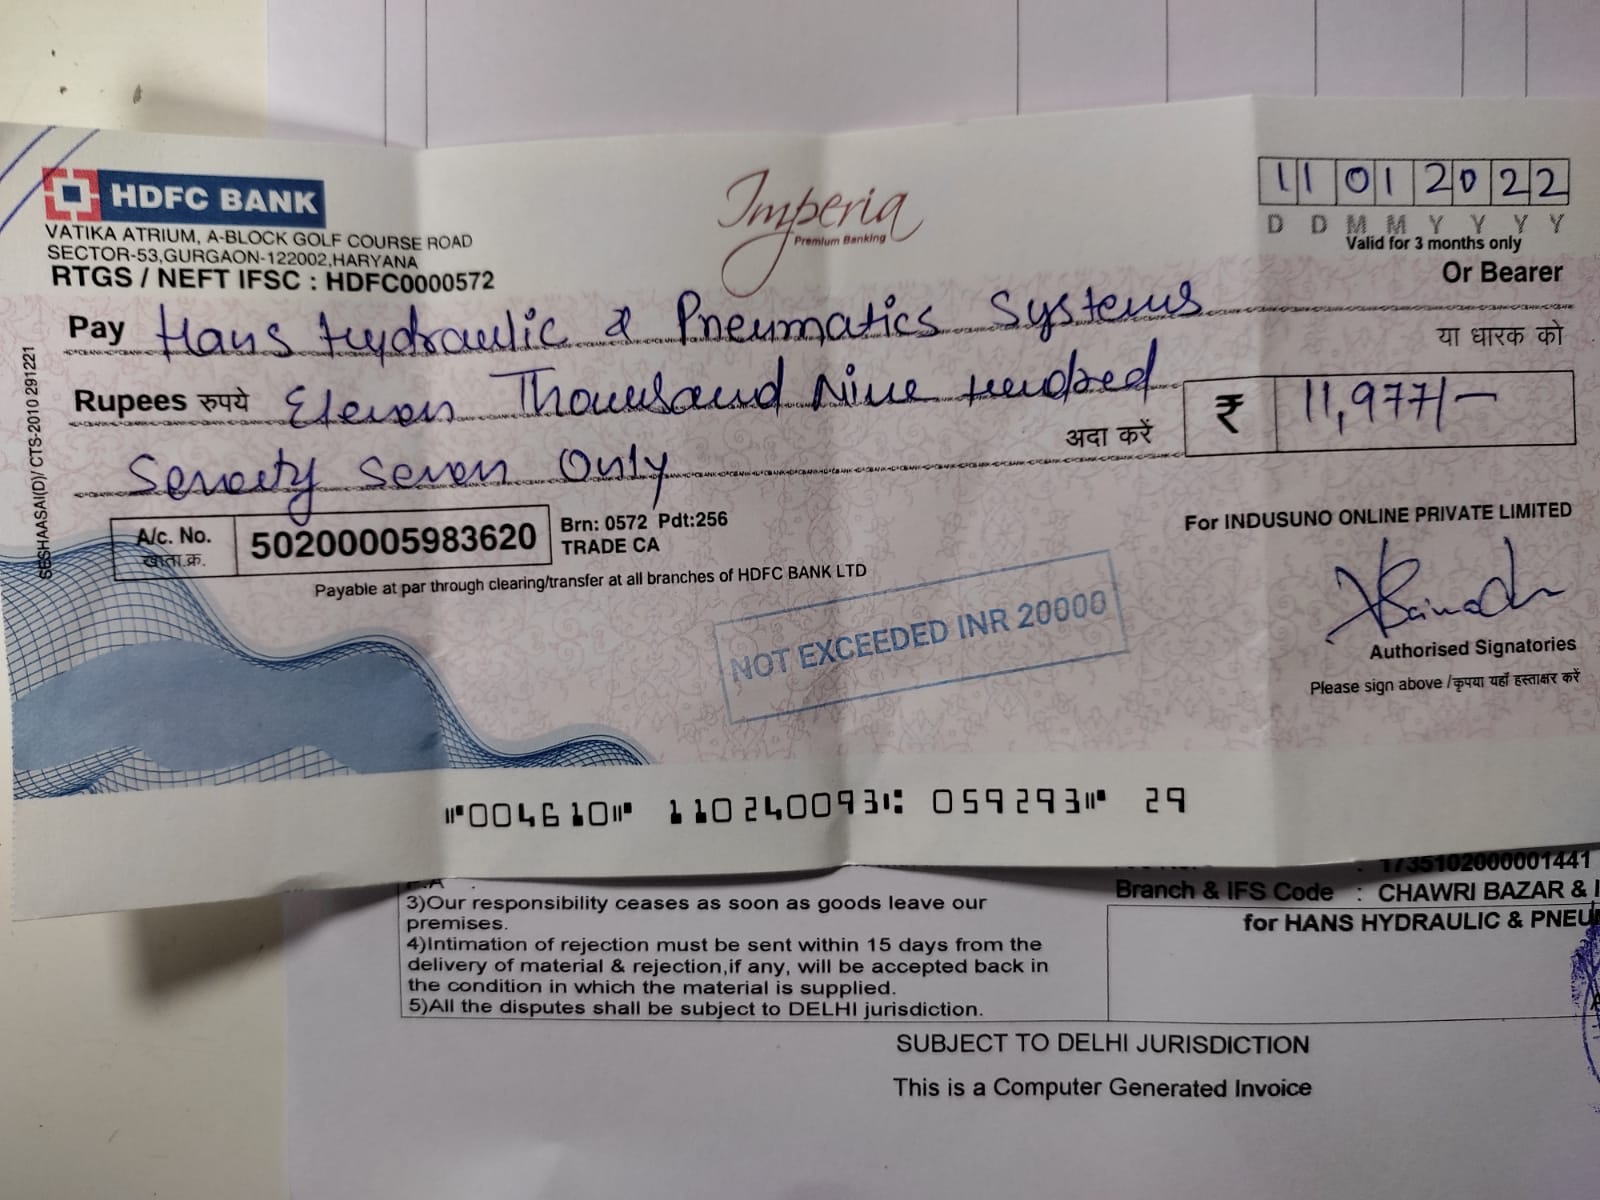 HDFC BANK
VATIKA ATRIUM, A-BLOCK GOLF COURSE ROAD
SECTOR-53,GURGAON-122002,HARYANA
RTGS / NEFT IFSC : HDFC0000572
Imperia
Premium Banking
11012022
D D M M Y Y Y Y
Valid for 3 months only
Or Bearer
Pay Hans Hydraulic & Pneumatics Systems
या धारक को
Rupees रुपये Eleven Thousand Nine Hundred
अदा करें
₹ 11,977/-
Seventy Seven Only
SESHAASAI(D)/ CTS-2010 291221
A/c. No.
खाता.क्र.
50200005983620
Brn: 0572 Pdt:256
TRADE CA
Payable at par through clearing/transfer at all branches of HDFC BANK LTD
For INDUSUNO ONLINE PRIVATE LIMITED
NOT EXCEEDED INR 20000
Authorised Signatories
Please sign above /कृपया यहाँ हस्ताक्षर करें
⑈004610⑈ 110240093⑆ 059293⑈ 29
: 1735102000001441
Branch & IFS Code : CHAWRI BAZAR &
for HANS HYDRAULIC &
3)Our responsibility ceases as soon as goods leave our
premises.
4)Intimation of rejection must be sent within 15 days from the
delivery of material & rejection,if any, will be accepted back in
the condition in which the material is supplied.
5)All the disputes shall be subject to DELHI jurisdiction.
SUBJECT TO DELHI JURISDICTION
This is a Computer Generated Invoice